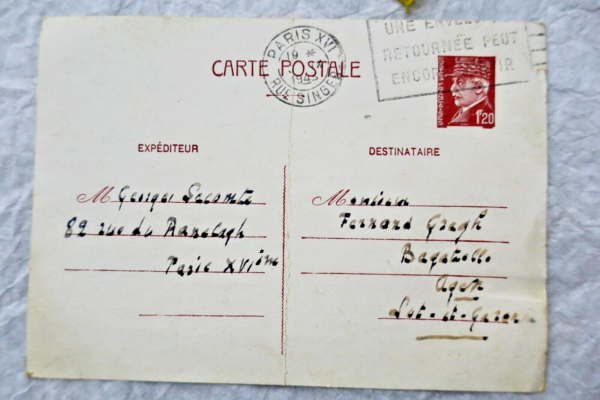 PARIS XVI
19 *
1943
RUE SINGER
UNE ENVEL
RETOURNÉE PEUT
ENCOR IR
CARTE POSTALE
FRANÇAISE
1f20
EXPÉDITEUR
M Georges Lecomte
82 rue du Ranelagh
Paris XVIème
DESTINATAIRE
Monsieur
Fernand Gregh
Bagatelle
Agen
Lot-et-Garonne